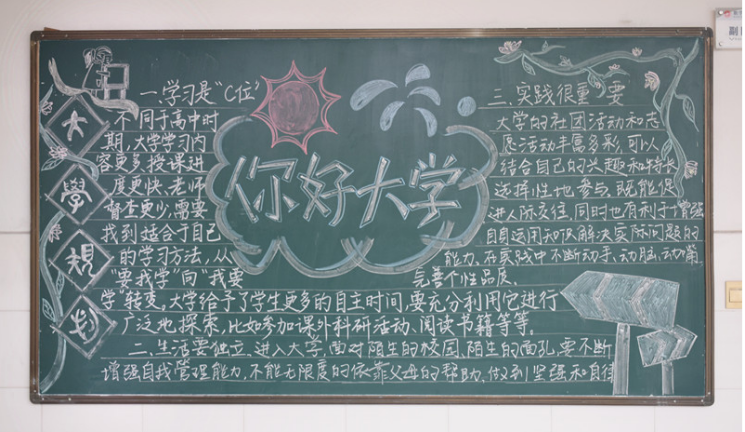 大
學
規
划
你好大学
一.学习是“C位”
不同于高中时
期,大学学习内
容更多,授课进
度更快,老师
督查更少,需要
找到适合于自己
的学习方法,从
“要我学”向“我要
学”转变。大学给予了学生更多的自主时间,要充分利用它进行
广泛地探索,比如参加课外科研活动、阅读书籍等等。
二.生活要独立.进入大学,面对陌生的校园、陌生的面孔,要不断
增强自我管理能力,不能无限度的依靠父母的帮助,做到坚强和自律
三.实践很重要
大学的社团活动和志
愿活动丰富多彩,可以
结合自己的兴趣和特长
选择性地参与,既能促
进人际交往,同时也有利于增强
自身运用知识解决实际问题的
能力,在实践中不断动手、动脑、动嘴,
完善个性品质。
副